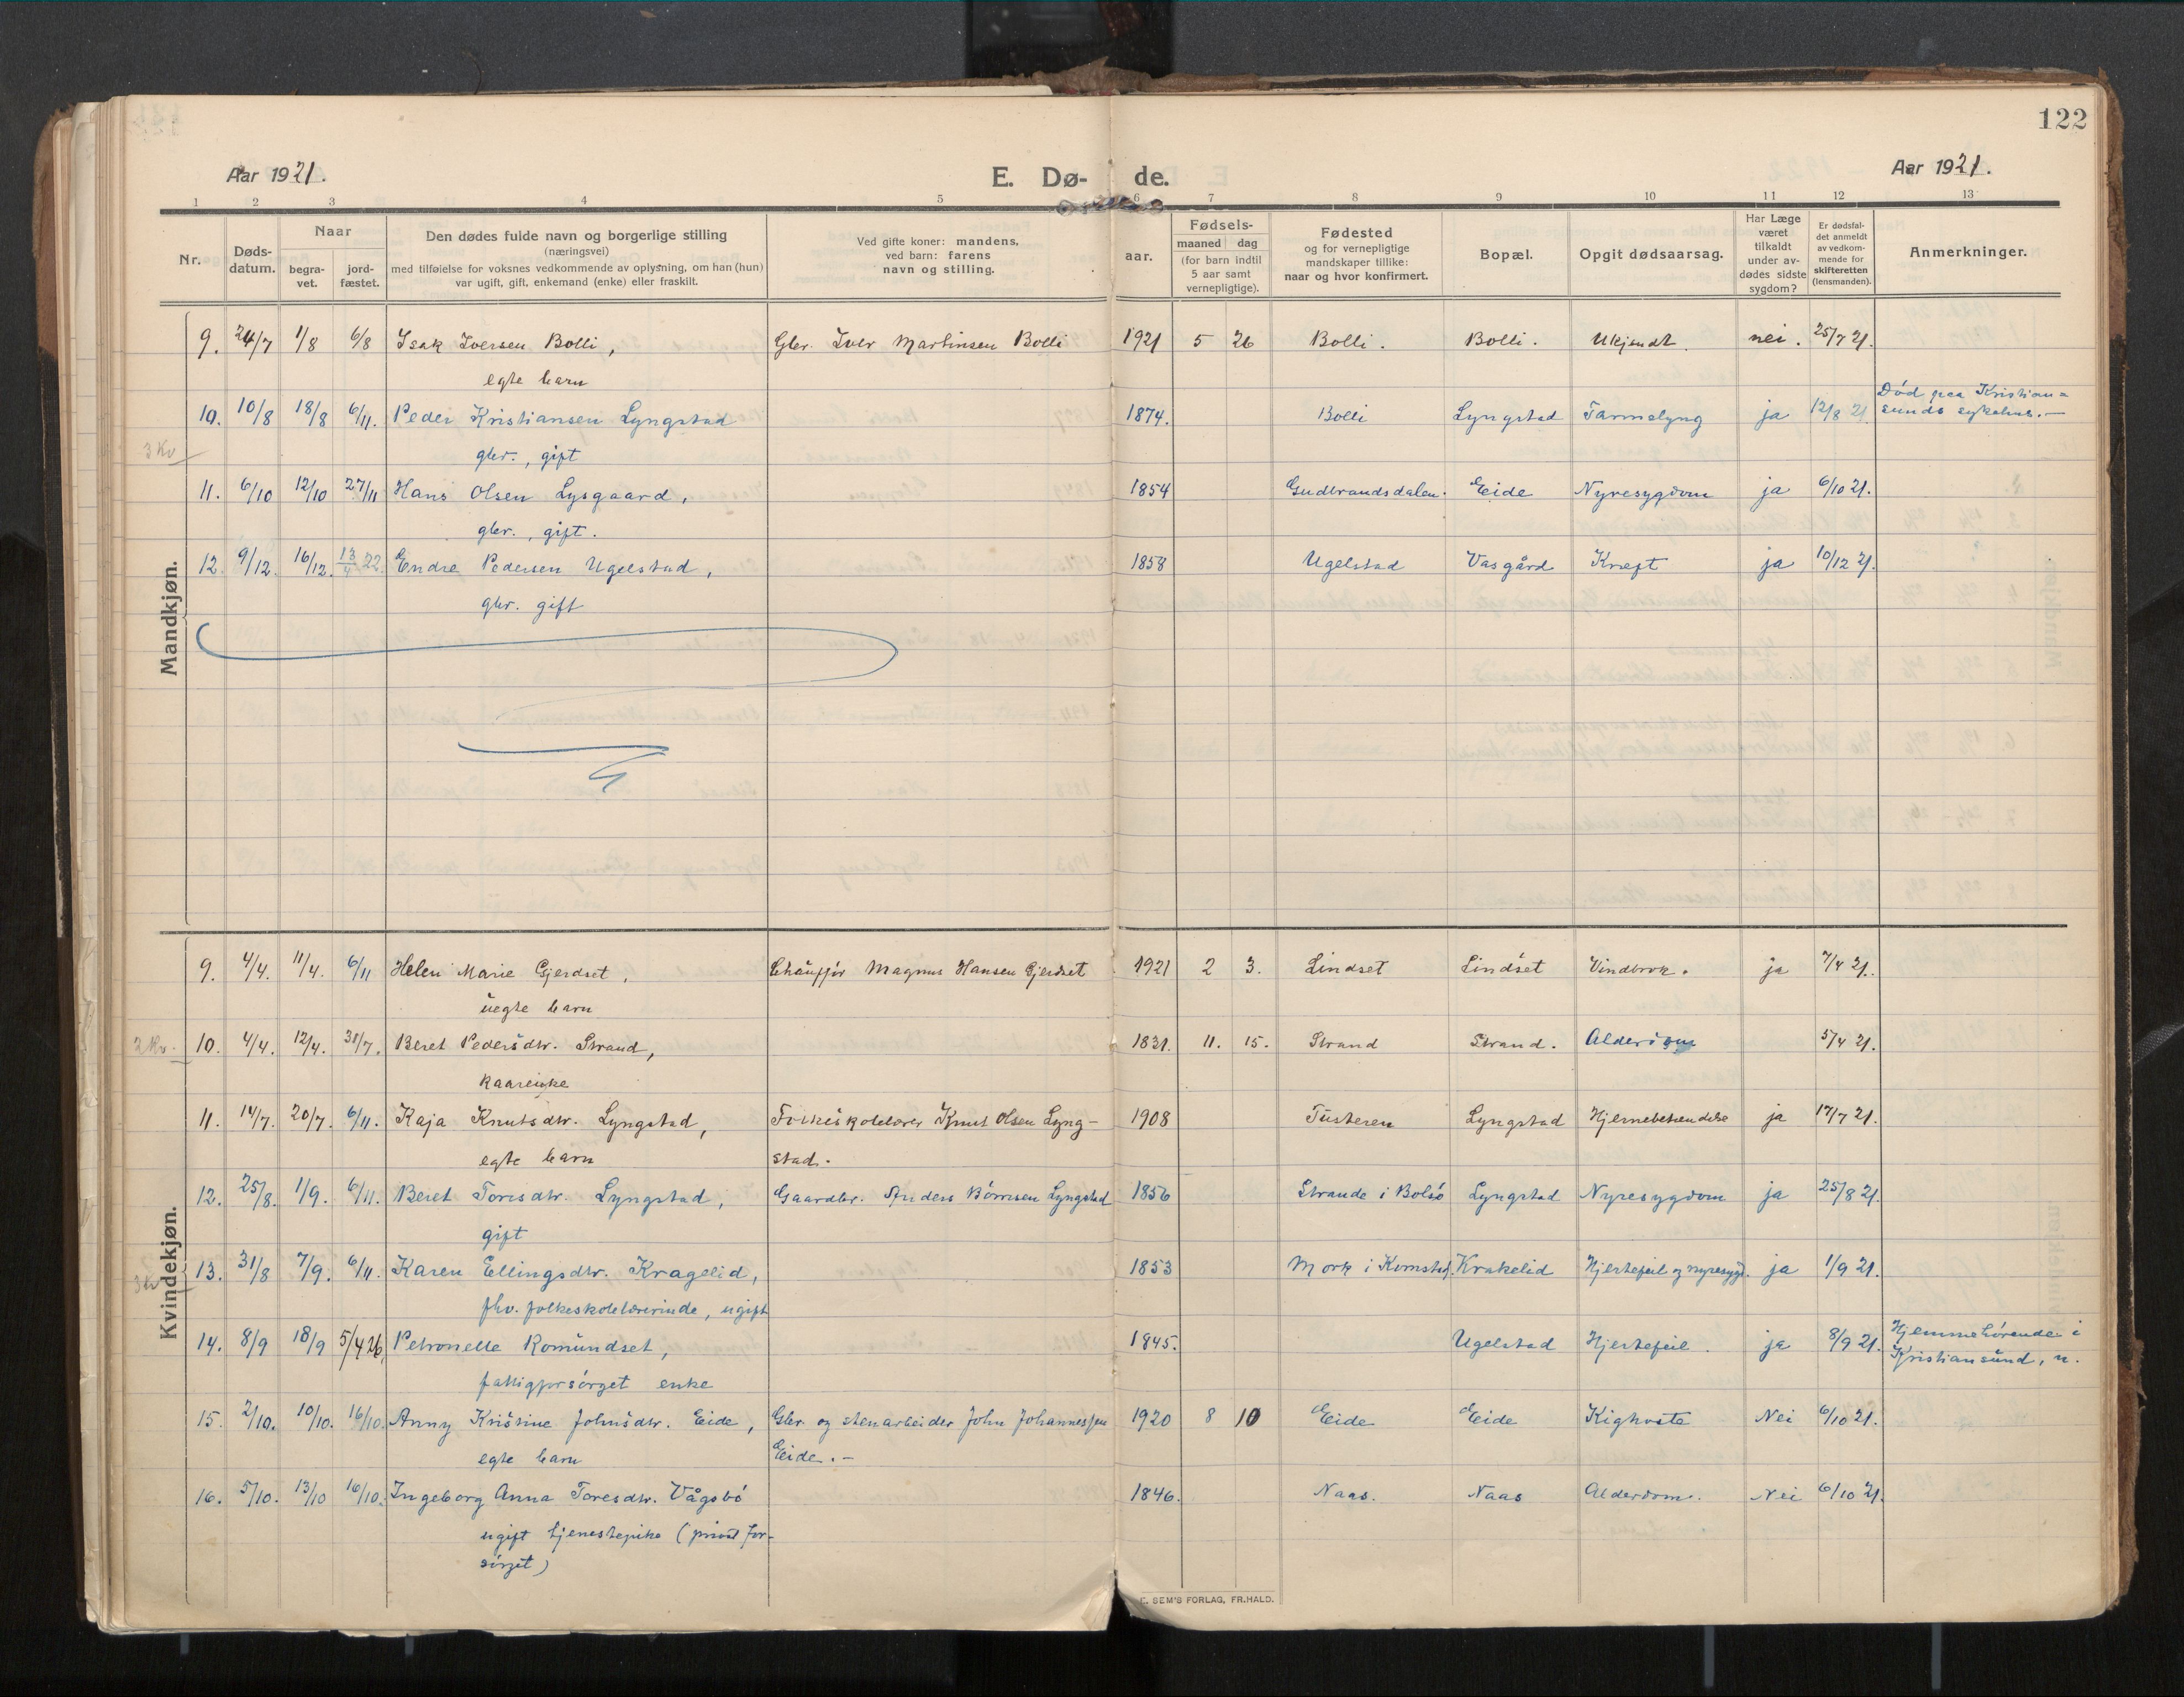 122
Aar 1921.
E. Dø- de.
Aar 1921.
1 2 3 4 5 6 7 8 9 10 11 12 13
Nr.
Døds-
datum.
Naar
begra-
vet.
jord-
fæstet.
Den dødes fulde navn og borgerlige stilling
(næringsvei)
med tilføielse for voksnes vedkommende av oplysning, om han (hun)
var ugift, gift, enkemand (enke) eller fraskilt.
Ved gifte koner: mandens,
ved barn: farens
navn og stilling.
Fødsels-
aar.
maaned dag
(for barn indtil
5 aar samt
vernepligtige).
Fødested
og for vernepligtige
mandskaper tillike:
naar og hvor konfirmert.
Bopæl.
Opgit dødsaarsag.
Har Læge
været
tilkaldt
under av-
dødes sidste
sygdom?
Er dødsfal-
det anmeldt
av vedkom-
mende for
skifteretten
(lensmanden).
Anmerkninger.
Mandkjøn.
9. 24/7 1/8 6/8 Isak Iversen Bolli, Gbr. Iver Martinsen Bolli 1921 5 26 Bolli. Bolli. Ukjendt. nei. 25/7 21.
egte barn
10. 10/8 18/8 6/11. Peder Kristiansen Lyngstad 1874. Bolli Lyngstad Tarmslyng ja 12/8 21. Död paa Kristian=
sunds sykehus.-
3 Kv
gbr., gift
11. 6/10 12/10 27/11 Hans Olsen Lysgaard, 1854 Gudbrandsdalen. Eide Nyresygdom ja 6/10 21.
gbr., gift.
12. 9/12. 16/12. 13/4 22. Endre Pedersen Ugelstad, 1858 Ugelstad Vasgård Kræft ja 10/12 21.
gbr. gift
Kvindekjøn.
9. 4/4. 11/4. 6/11 Helen Marie Gjerdset, Chauffør Magnus Hansen Gjerdset 1921 2 3. Lindset Lindset Vindbrok. ja 7/4 21.
uegte barn
3 Kv. 10. 4/4. 12/4. 31/7. Beret Pedersdtr. Strand, 1831. 11. 15. Strand Strand. Alderdom 5/4 21.
kaarenke
11. 14/7. 20/7. 6/11. Kaja Knutsdtr. Lyngstad, Folkeskolelærer Knut Olsen Lyng- 1908 Tusteren Lyngstad Hjernebetændelse ja 17/7 21.
egte barn stad.
12. 25/8. 1/9. 6/11. Beret Toresdtr. Lyngstad, Gaardbr. Anders Børresen Lyngstad 1856 Strande i Bolsö Lyngstad Nyresygdom ja 25/8 21.
gift
3 Kv 13. 31/8 7/9. 6/11. Karen Ellingsdtr. Kragelid, 1853 Mork i Kornstad. Krakelid Hjertefeil og nyresygd. ja 1/9 21.
fhv. folkeskolelærerinde, ugift
14. 8/9 18/9 5/4 26, Petronelle Romundset, 1845. Ugelstad Hjertefeil. ja 8/9 21. Hjemmehörende i
Kristiansund, n.
fattigforsörget enke
15. 2/10. 10/10. 16/10. Anny Kristine Johnsdtr. Eide, Gbr. og stenarbeider John Johannessen 1920 8 10 Eide Eide Kighoste Nei 6/10 21.
egte barn Eide.-
16. 5/10. 13/10 16/10. Ingeborg Anna Toresdtr. Vågsbö 1846. Naas. Naas Alderdom. Nei 6/10 21.
ugift tjenestepike (privat for-
sörget)
E. SEM'S FORLAG, FR.HALD.